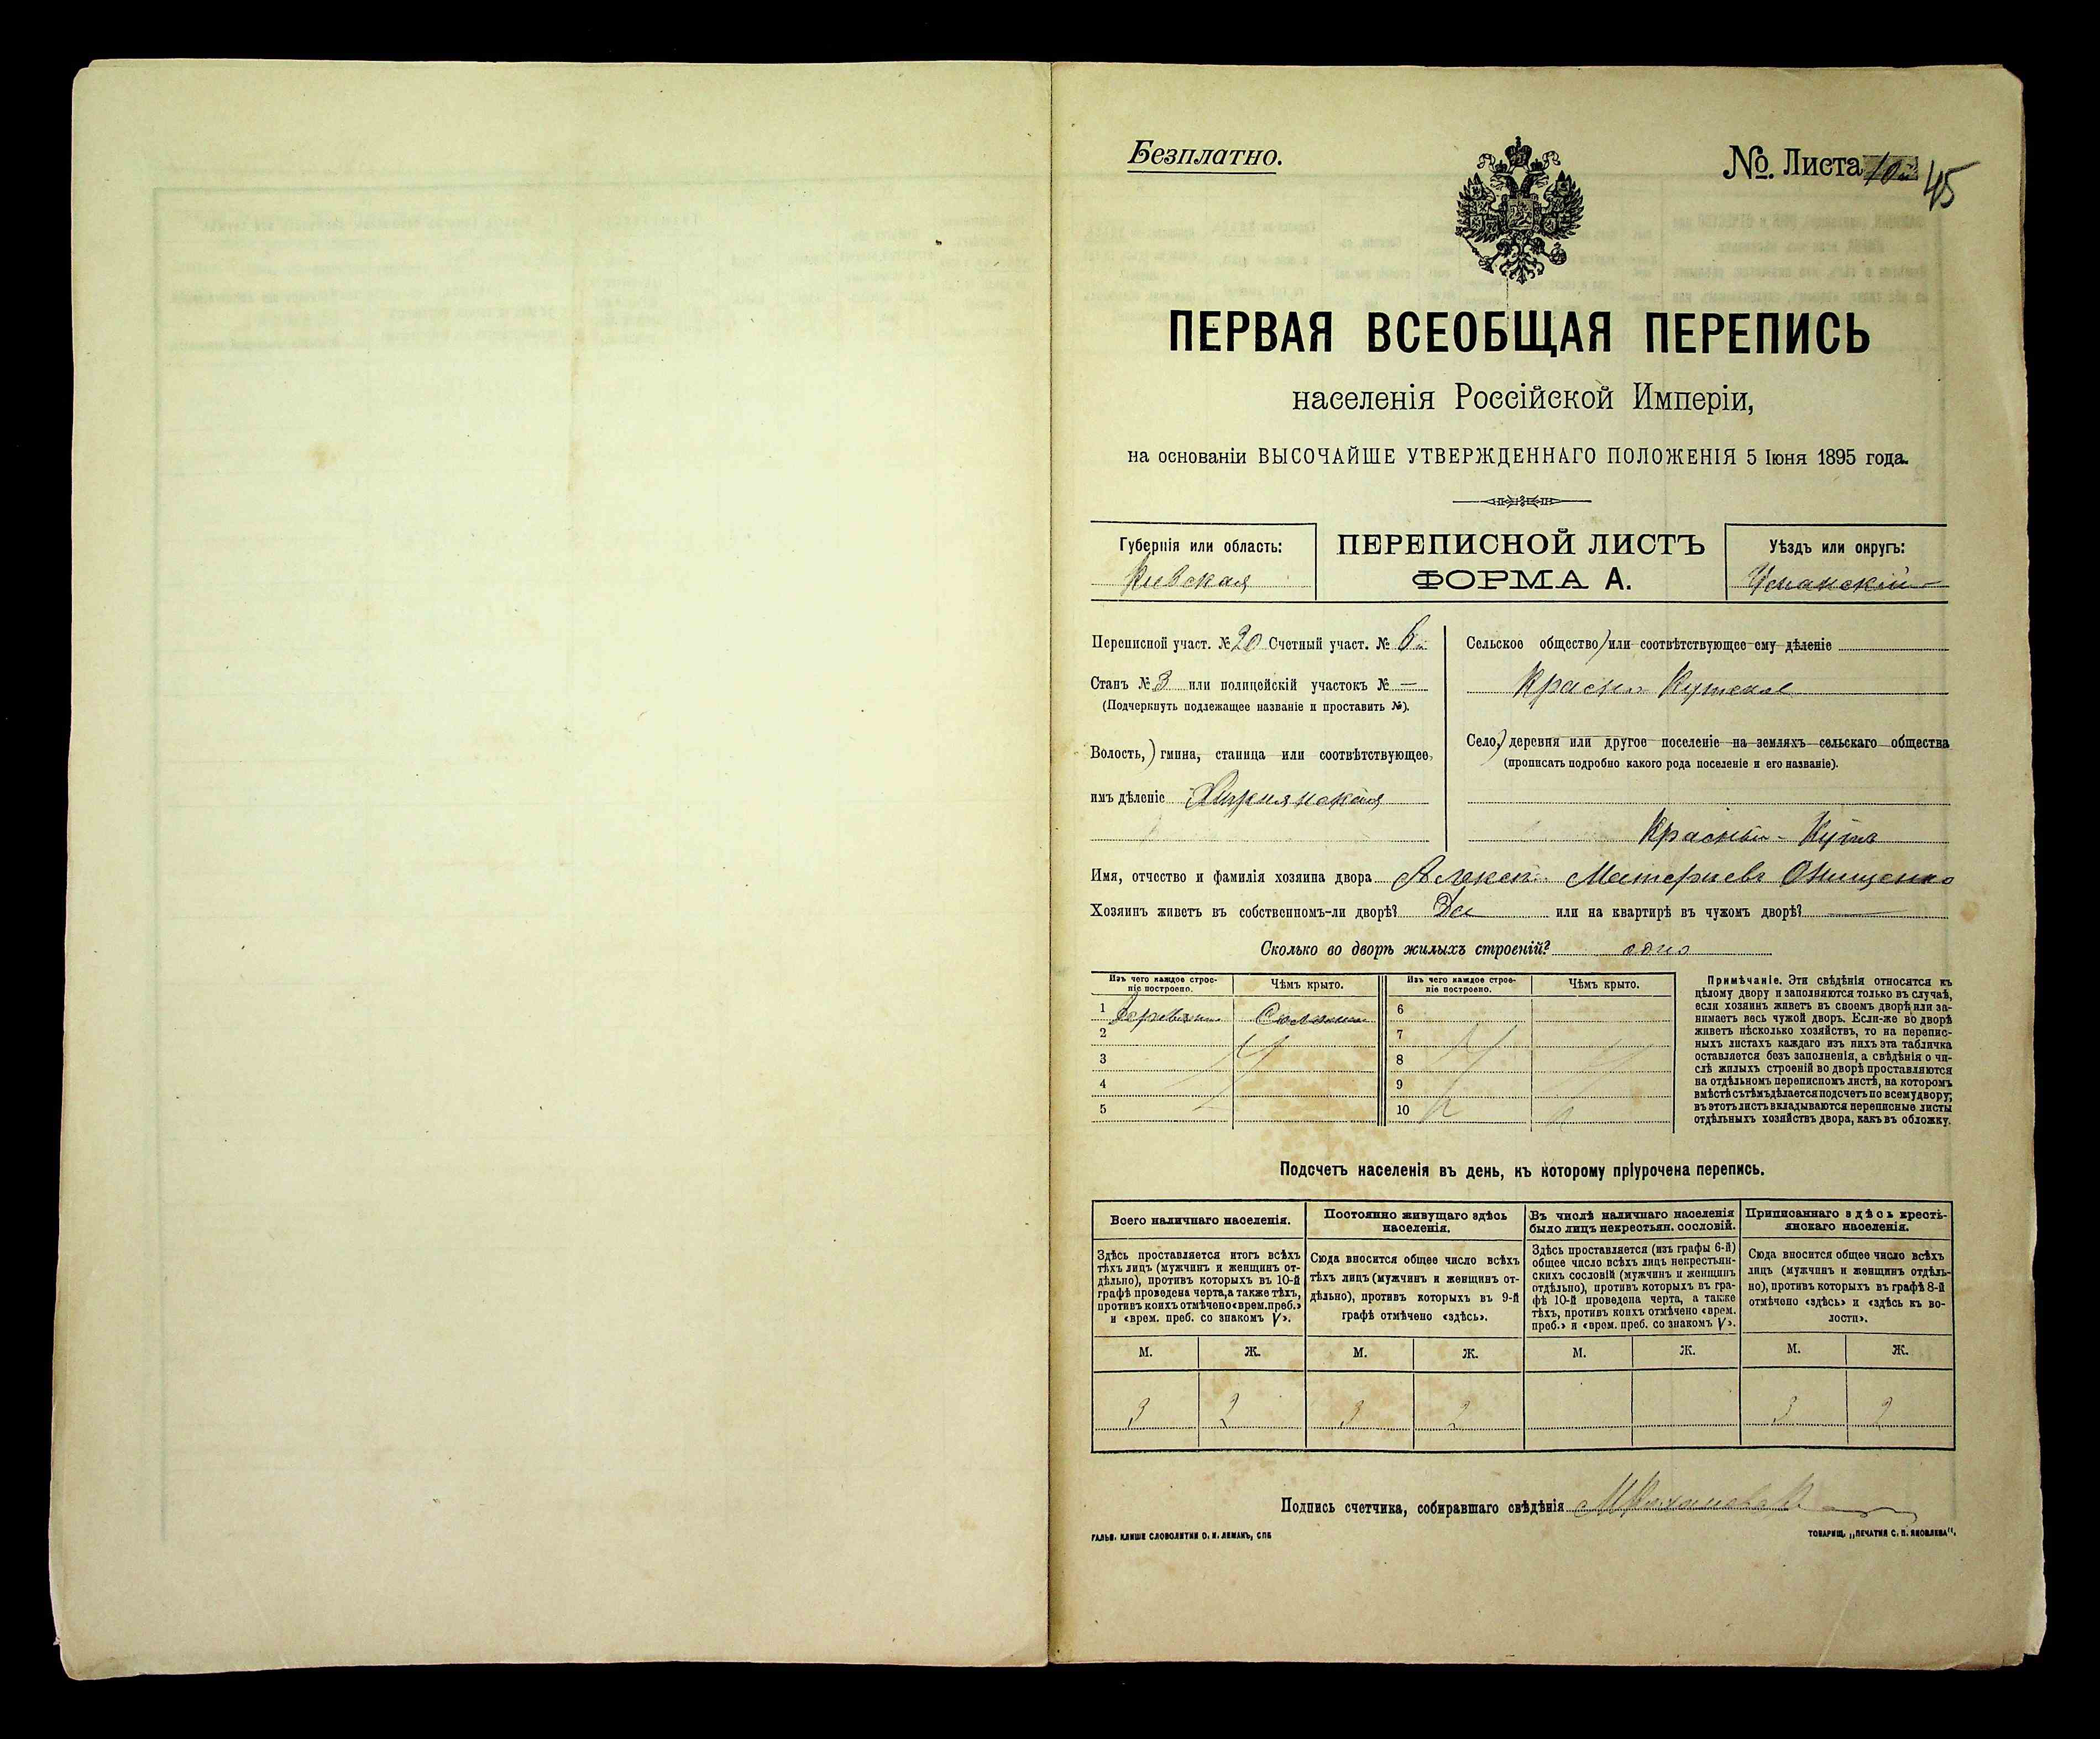 Безплатно.
№. Листа 10й 45
ПЕРВАЯ ВСЕОБЩАЯ ПЕРЕПИСЬ
населенія Россійской Имперіи,
на основаніи ВЫСОЧАЙШЕ УТВЕРЖДЕННАГО ПОЛОЖЕНІЯ 5 Іюня 1895 года.
Губернія или область:
Кіевская
ПЕРЕПИСНОЙ ЛИСТЪ
ФОРМА А.
Уѣздъ или округъ:
Уманскій
Переписной участ. № 20 Счетный участ. № 6й
Станъ № 3 или полицейскій участокъ № —
(Подчеркнуть подлежащее названіе и проставить №).
Волость,) гмина, станица или соотвѣтствующее
имъ дѣленіе
Сельское общество) или соотвѣтствующее ему дѣленіе
Красно Кутское
Село,) деревня или другое поселеніе на земляхъ сельскаго общества
(прописать подробно какого рода поселеніе и его названіе).
Красный - Кутъ
Имя, отчество и фамилія хозяина двора Алексѣй Онищенко
Хозяинъ живетъ въ собственномъ-ли дворѣ? Да или на квартирѣ въ чужомъ дворѣ? —
Сколько во дворѣ жилыхъ строеній? одно
Изъ чего каждое строе-
ніе построено.
Чѣмъ крыто.
Изъ чего каждое строе-
ніе построено.
Чѣмъ крыто.
1 Соломою
2
3
4
5
6
7
8
9
10
Примѣчаніе. Эти свѣдѣнія относятся къ
цѣлому двору и заполняются только въ случаѣ,
если хозяинъ живетъ въ своемъ дворѣ или за-
нимаетъ весь чужой дворъ. Если-же во дворѣ
живетъ нѣсколько хозяйствъ, то на перепис-
ныхъ листахъ каждаго изъ нихъ эта табличка
оставляется безъ заполненія, а свѣдѣнія о чи-
слѣ жилыхъ строеній во дворѣ проставляются
на отдѣльномъ переписномъ листѣ, на которомъ
вмѣстѣ съ тѣмъ дѣлается подсчетъ по всему двору;
въ этотъ листъ вкладываются переписные листы
отдѣльныхъ хозяйствъ двора, какъ въ обложку.
Подсчетъ населенія въ день, къ которому пріурочена перепись.
Всего наличнаго населенія.
Здѣсь проставляется итогъ всѣхъ
тѣхъ лицъ (мужчинъ и женщинъ от-
дѣльно), противъ которыхъ въ 10-й
графѣ проведена черта, а также тѣхъ,
противъ коихъ отмѣчено «врем. преб.»
и «врем. преб. со знакомъ V».
Постоянно живущаго здѣсь
населенія.
Сюда вносится общее число всѣхъ
тѣхъ лицъ (мужчинъ и женщинъ от-
дѣльно), противъ которыхъ въ 9-й
графѣ отмѣчено «здѣсь».
Въ числѣ наличнаго населенія
было лицъ некрестьян. сословій.
Здѣсь проставляется (изъ графы 6-й)
общее число всѣхъ лицъ некрестьян-
скихъ сословій (мужчинъ и женщинъ
отдѣльно), противъ которыхъ въ гра-
фѣ 10-й проведена черта, а также
тѣхъ, противъ коихъ отмѣчено «врем.
преб.» и «врем. преб. со знакомъ V».
Приписаннаго здѣсь кресть-
янскаго населенія.
Сюда вносится общее число всѣхъ
лицъ (мужчинъ и женщинъ отдѣль-
но), противъ которыхъ въ графѣ 8-й
отмѣчено «здѣсь» и «здѣсь къ во-
лости».
М. Ж. М. Ж. М. Ж. М. Ж.
3 2 3 2 3 2
Подпись счетчика, собиравшаго свѣдѣнія
ГАЛЬВ. КЛИШЕ СЛОВОЛИТНИ О. И. ЛЕМАНЪ, СПБ
ТОВАРИЩ. „ПЕЧАТНЯ С. П. ЯКОВЛЕВА".